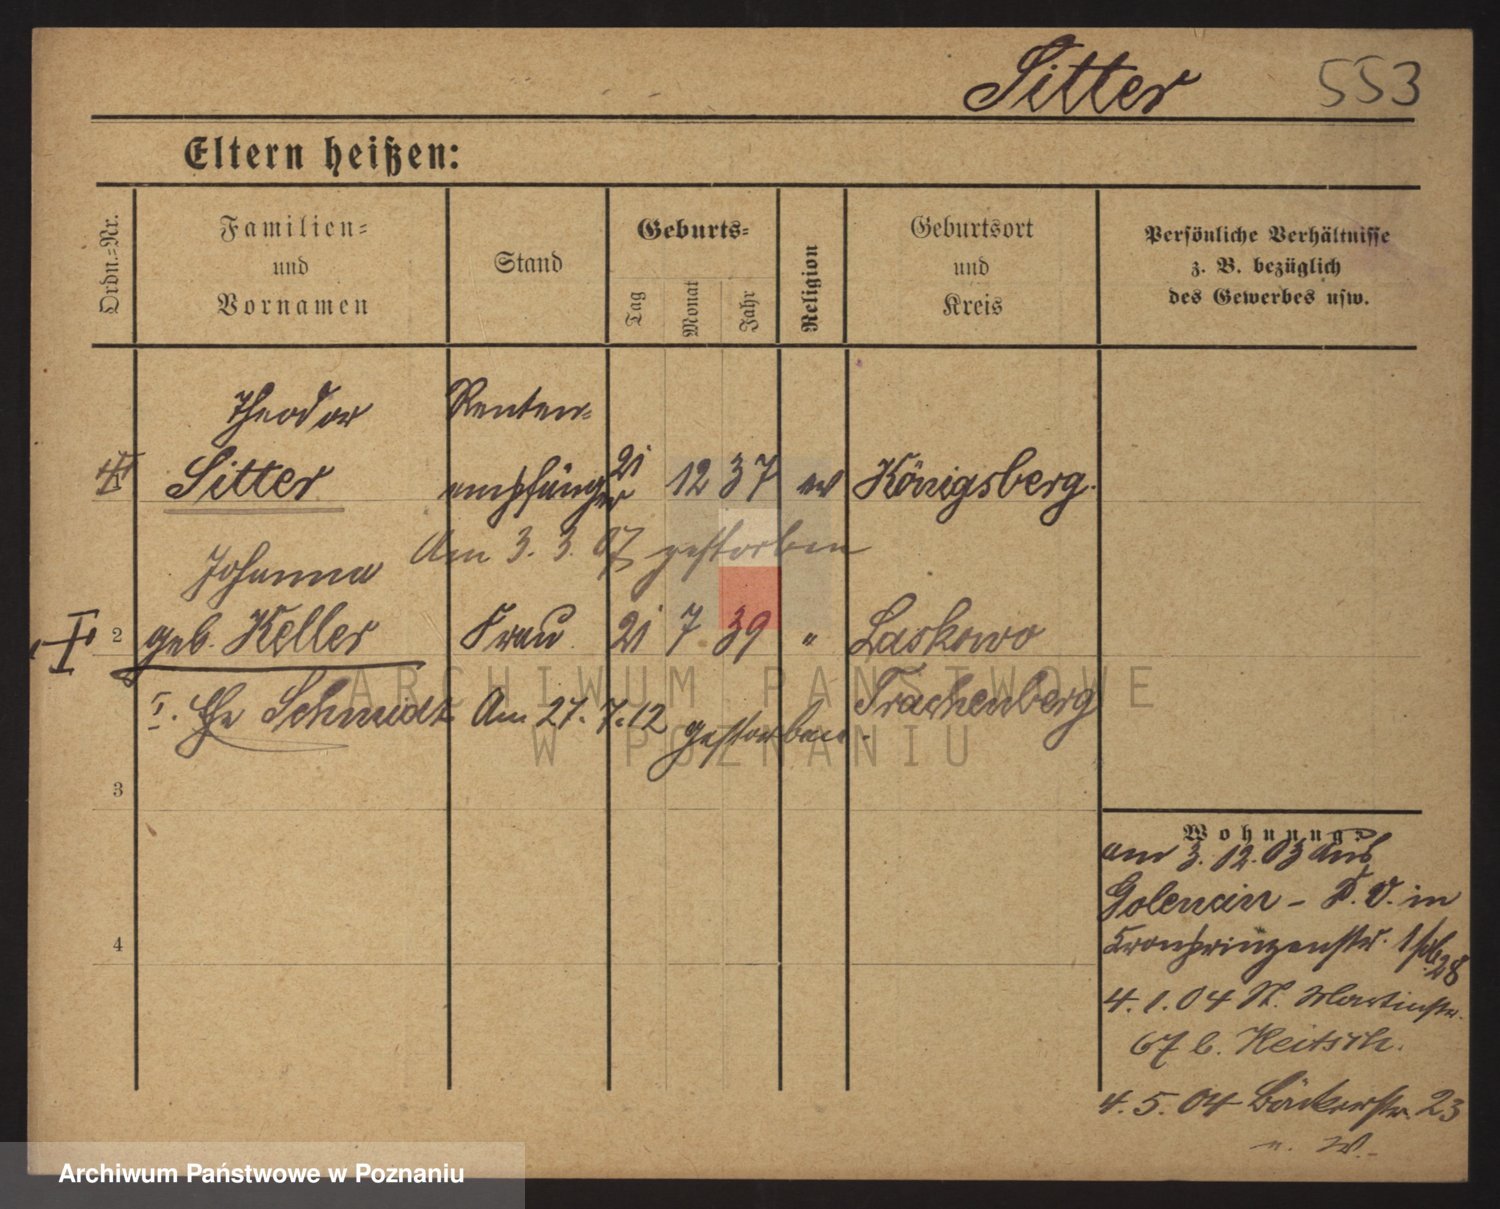 Sitter 553
Eltern heißen:
Ordn.-Nr. Familien- und Vornamen Stand Geburts- Tag Monat Jahr Religion Geburtsort und Kreis Persönliche Verhältnisse z. B. bezüglich des Gewerbes usw.
Theodor Renten-
Sitter empfänger 21 12 37 ev Königsberg.
Am 3. 3. 07 gestorben
Johanna
2 geb. Keller Frau 21 7 39 " Laskowo
I. Ehe Schmidt Am 27. 7. 12 gestorben. Trachenberg
3
4
Wohnung:
am 3. 12. 03 aus
in
Kronprinzenstr.
4. 1. 04 St. Martinstr.
67 b. Keitsch.
4. 5. 04 Bäckerstr. 23
n. W.
ARCHIWUM PAŃSTWOWE
W POZNANIU
Archiwum Państwowe w Poznaniu